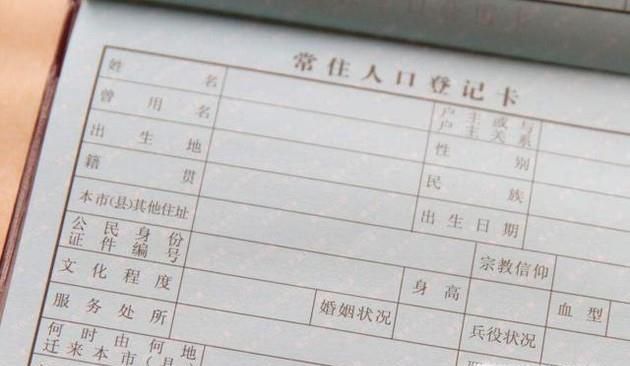 常住人口登记卡
姓名
户主或与
户主关系
曾用名
性别
出生地
民族
籍贯
出生日期
本市(县)其他住址
宗教信仰
公民身份
证件编号
身高
血型
文化程度
婚姻状况
兵役状况
服务处所
何时由何地
迁来本市(县)